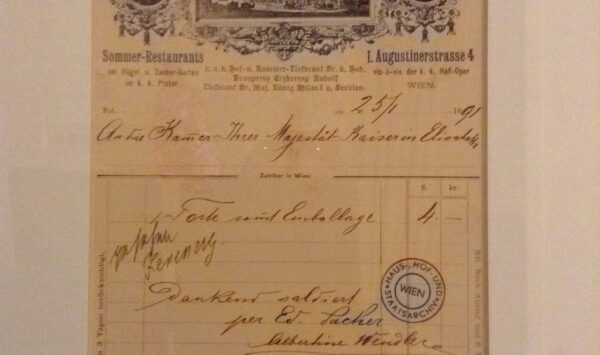 Sommer-Restaurants
am Hügel u. Zauber-Garten
im k. k. Prater.
k. u. k. Hof- u. Kammer-Lieferant Sr. k. Hoh.
Kronprinz Erzherzog Rudolf
Lieferant Sr. Maj. König Milan I. v. Serbien.
I. Augustinerstrasse 4
vis-à-vis der k. k. Hof-Oper
WIEN.
am 25/1 1891
An die Kamer Ihrer Majestät Kaiserin Elisabeth
Zahlbar in Wien.
fl. kr.
1 Torte samt Emballage 4.—
Ferenczy
Dankend saldiert
per Ed. Sacher
Albertine Wendler
HAUS-, HOF- UND STAATSARCHIV
WIEN
3 Tagen berücksichtigt.